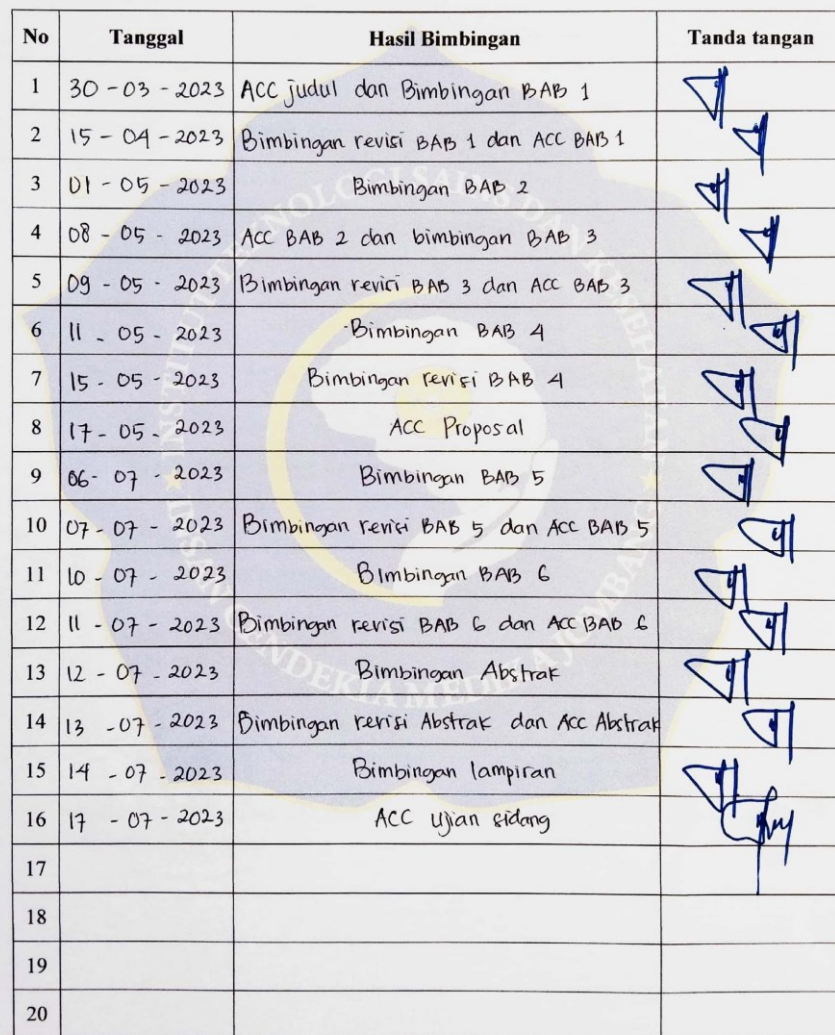 No Tanggal Hasil Bimbingan Tanda tangan
1 30 - 03 - 2023 ACC judul dan Bimbingan BAB 1
2 15 - 04 - 2023 Bimbingan revisi BAB 1 dan ACC BAB 1
3 01 - 05 - 2023 Bimbingan BAB 2
4 08 - 05 - 2023 ACC BAB 2 dan bimbingan BAB 3
5 09 - 05 - 2023 Bimbingan revisi BAB 3 dan ACC BAB 3
6 11 - 05 - 2023 Bimbingan BAB 4
7 15 - 05 - 2023 Bimbingan revisi BAB 4
8 17 - 05 - 2023 ACC Proposal
9 06 - 07 - 2023 Bimbingan BAB 5
10 07 - 07 - 2023 Bimbingan revisi BAB 5 dan ACC BAB 5
11 10 - 07 - 2023 Bimbingan BAB 6
12 11 - 07 - 2023 Bimbingan revisi BAB 6 dan ACC BAB 6
13 12 - 07 - 2023 Bimbingan Abstrak
14 13 - 07 - 2023 Bimbingan revisi Abstrak dan Acc Abstrak
15 14 - 07 - 2023 Bimbingan lampiran
16 17 - 07 - 2023 ACC ujian sidang
17
18
19
20
INSTITUT TEKNOLOGI SAINS DAN KESEHATAN
INSAN CENDEKIA MEDIKA JOMBANG